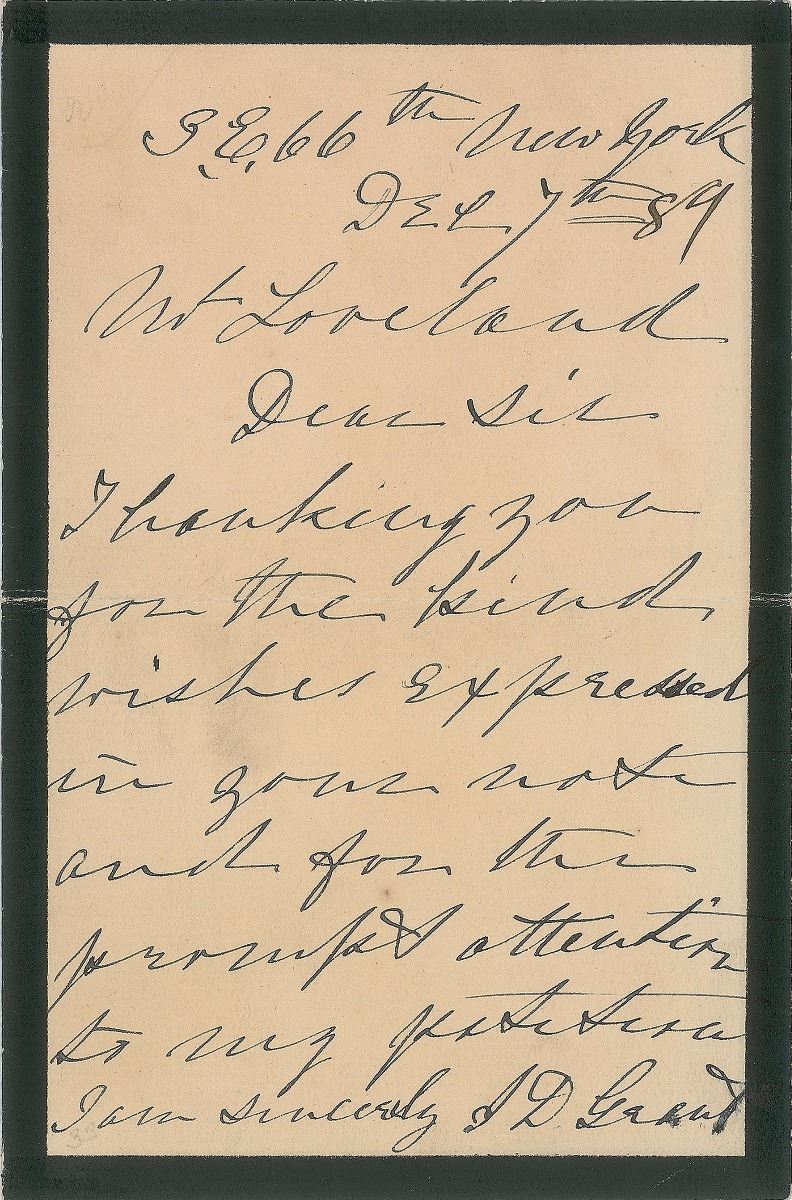 3. E. 66th New York
Dec 7th 89
Mr Loveland
Dear Sir
Thanking you
for the kind
wishes expressed
in your note
and for the
prompt attention
to my petition
I am sincerely J D. Grant